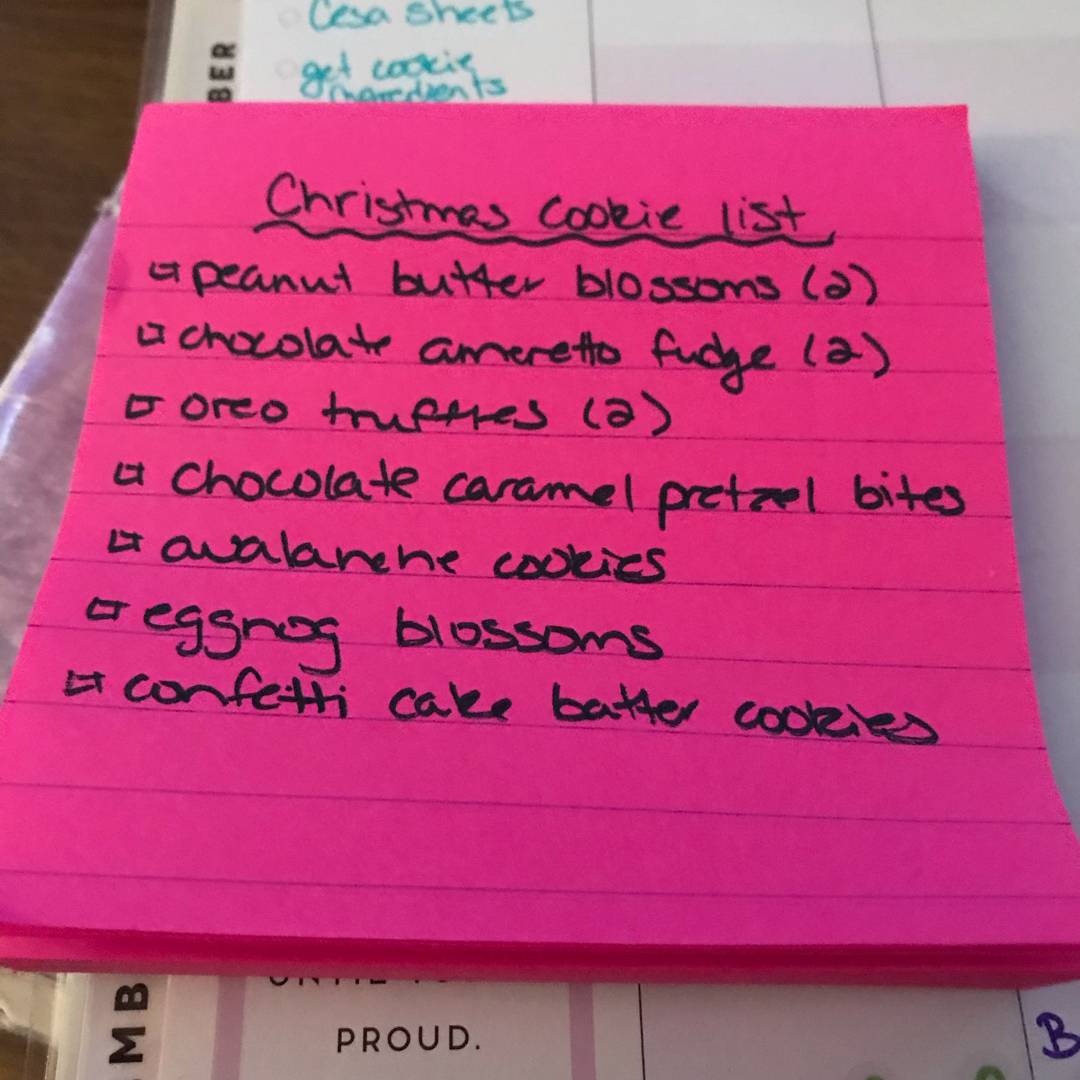 Cesa sheets
BER
get cookie
ingredients
Christmas Cookie list
peanut butter blossoms (2)
chocolate ameretto fudge (2)
oreo truffles (2)
chocolate caramel pretzel bites
avalanche cookies
eggnog blossoms
confetti cake batter cookies
MB
PROUD.
B